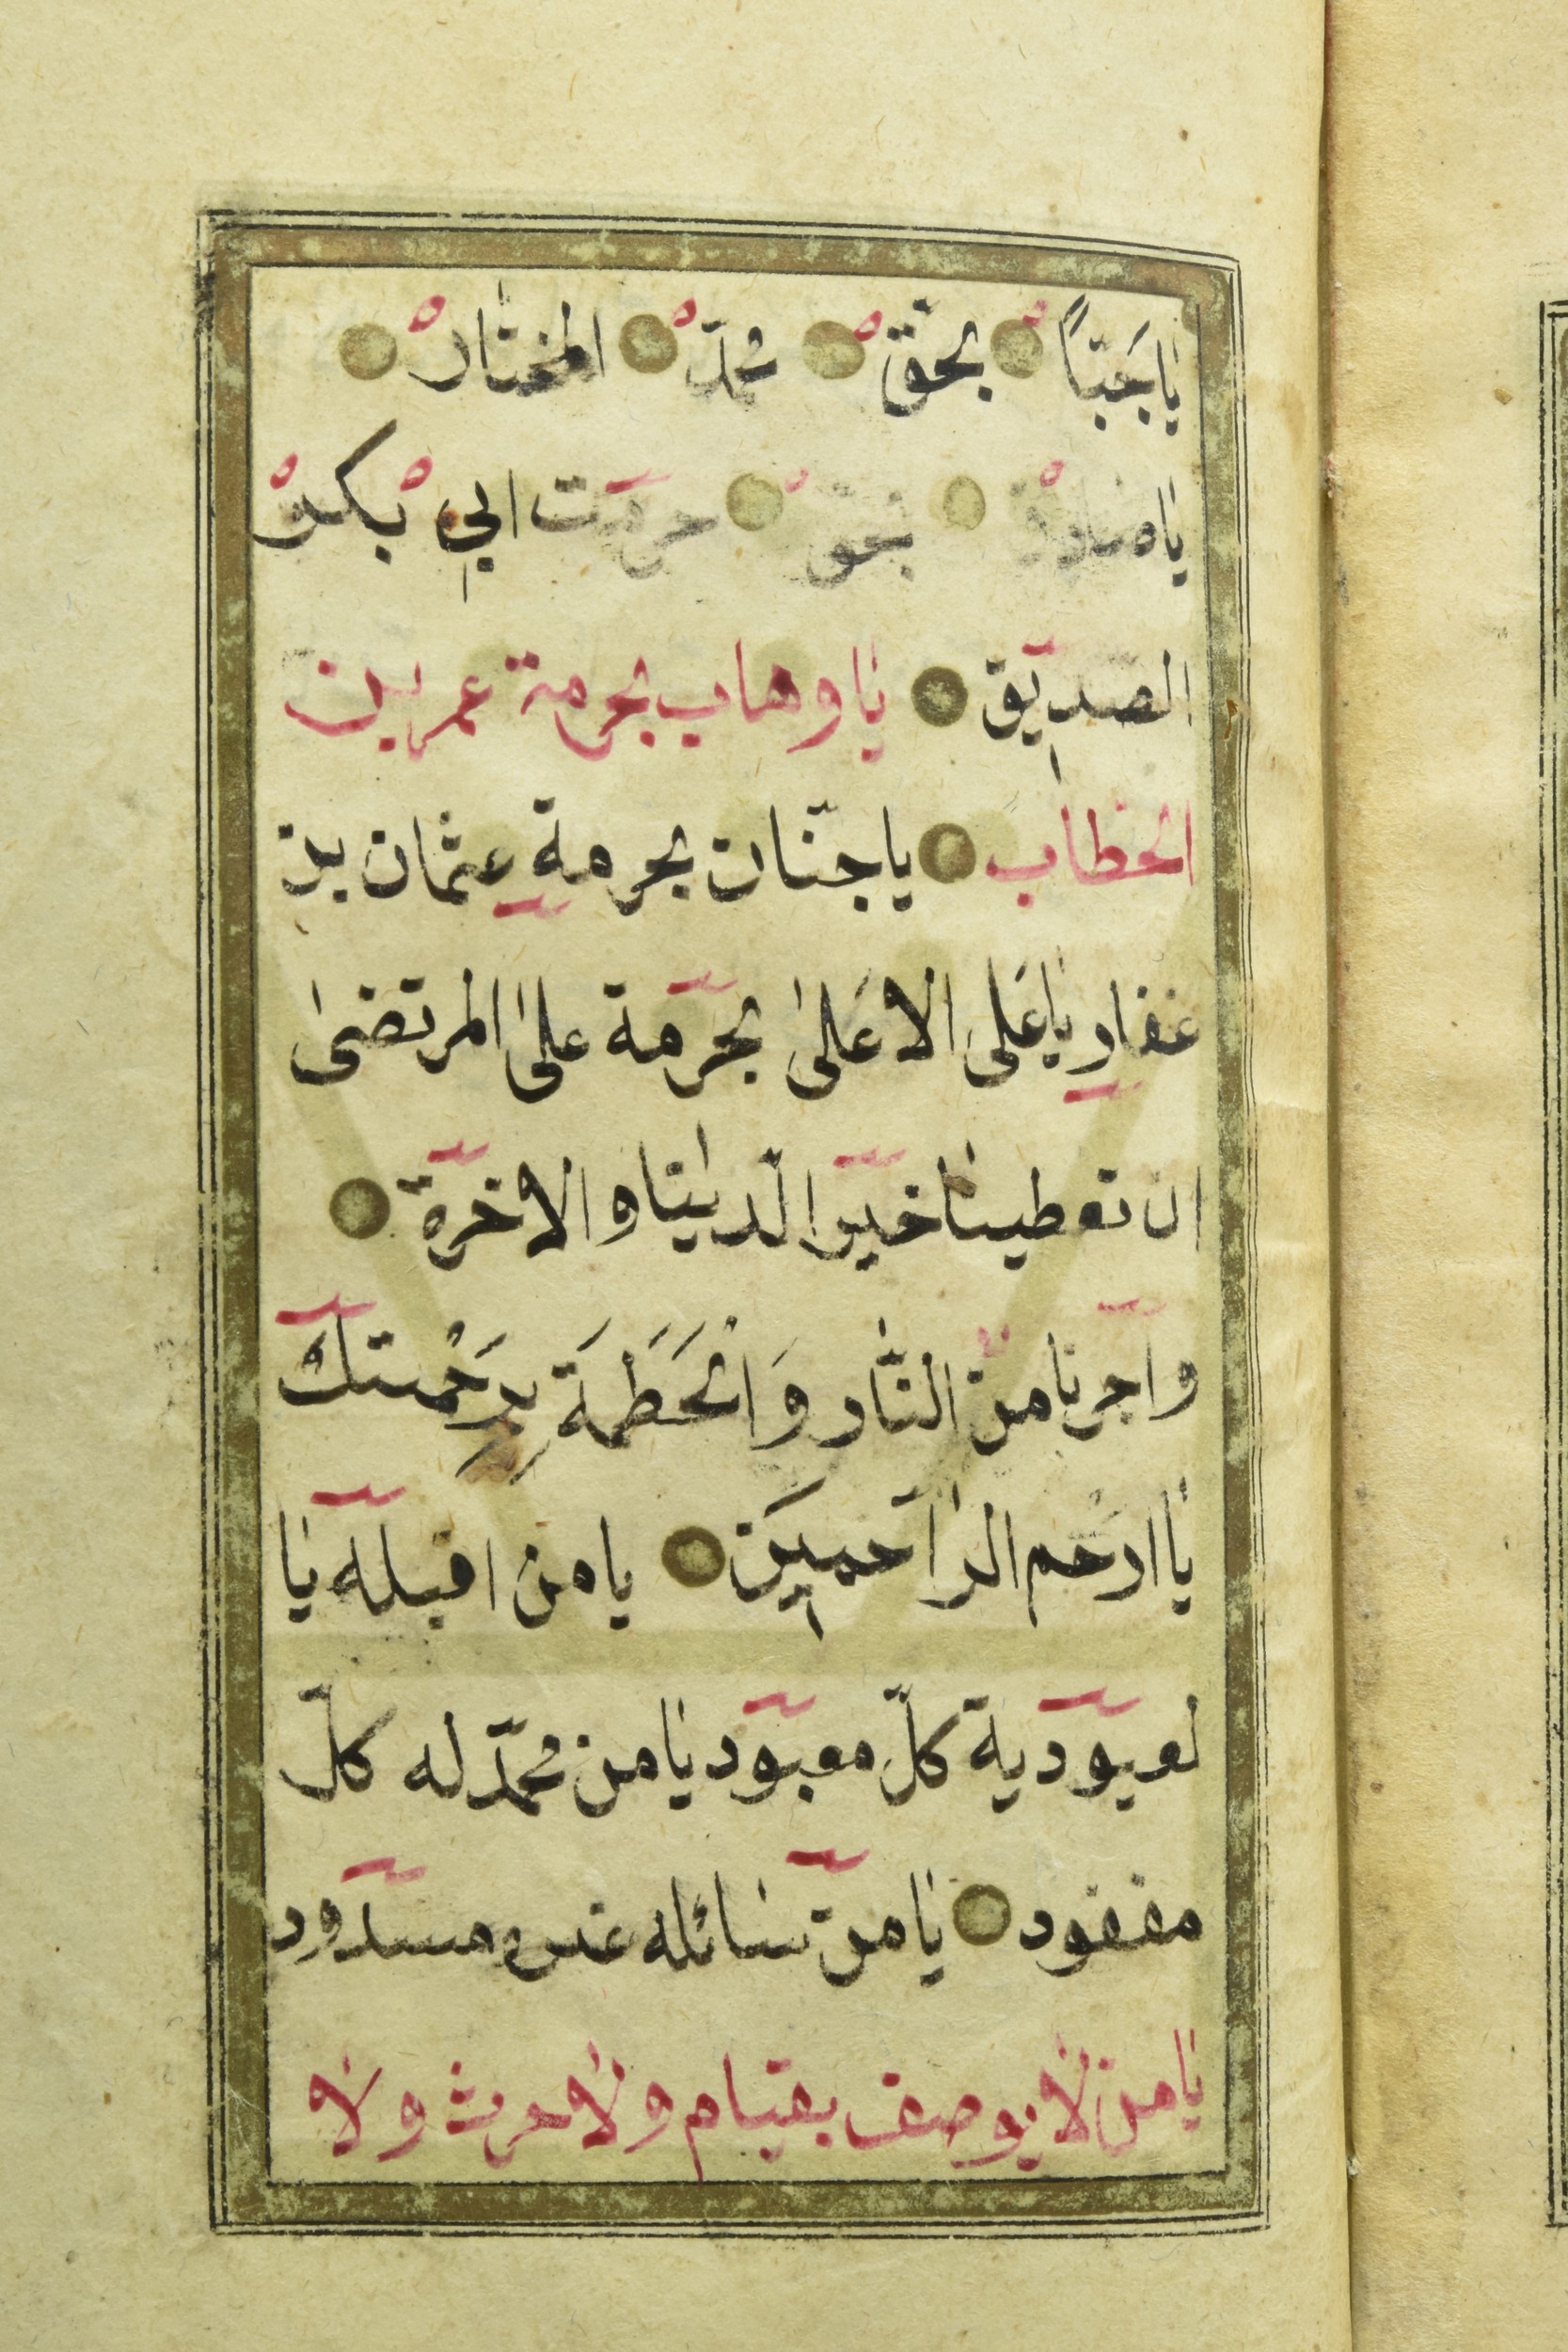 يا جَبّاً بحقّ محمدّ المختار
يا بحق حرمت ابي بكر
الصديق يا وهاب بحرمة عمر بن
الخطاب يا جنّان بحرمة عثمان بن
عفار يا عَلى الاعَلىٰ بحرمة علىٰ المرتضىٰ
ان تعطينا خير الدينا والاخرة
واجرنا من النّار وَالحَطَمَة برَحْمتك
يا ارْحم الراحمين يا من اقبله يا
لعبودية كلّ معبود يا من محمدّ له كلّ
مفقود يا من سائله غير مسدود
يا من لا يوصف بقيام ولا حرث ولا